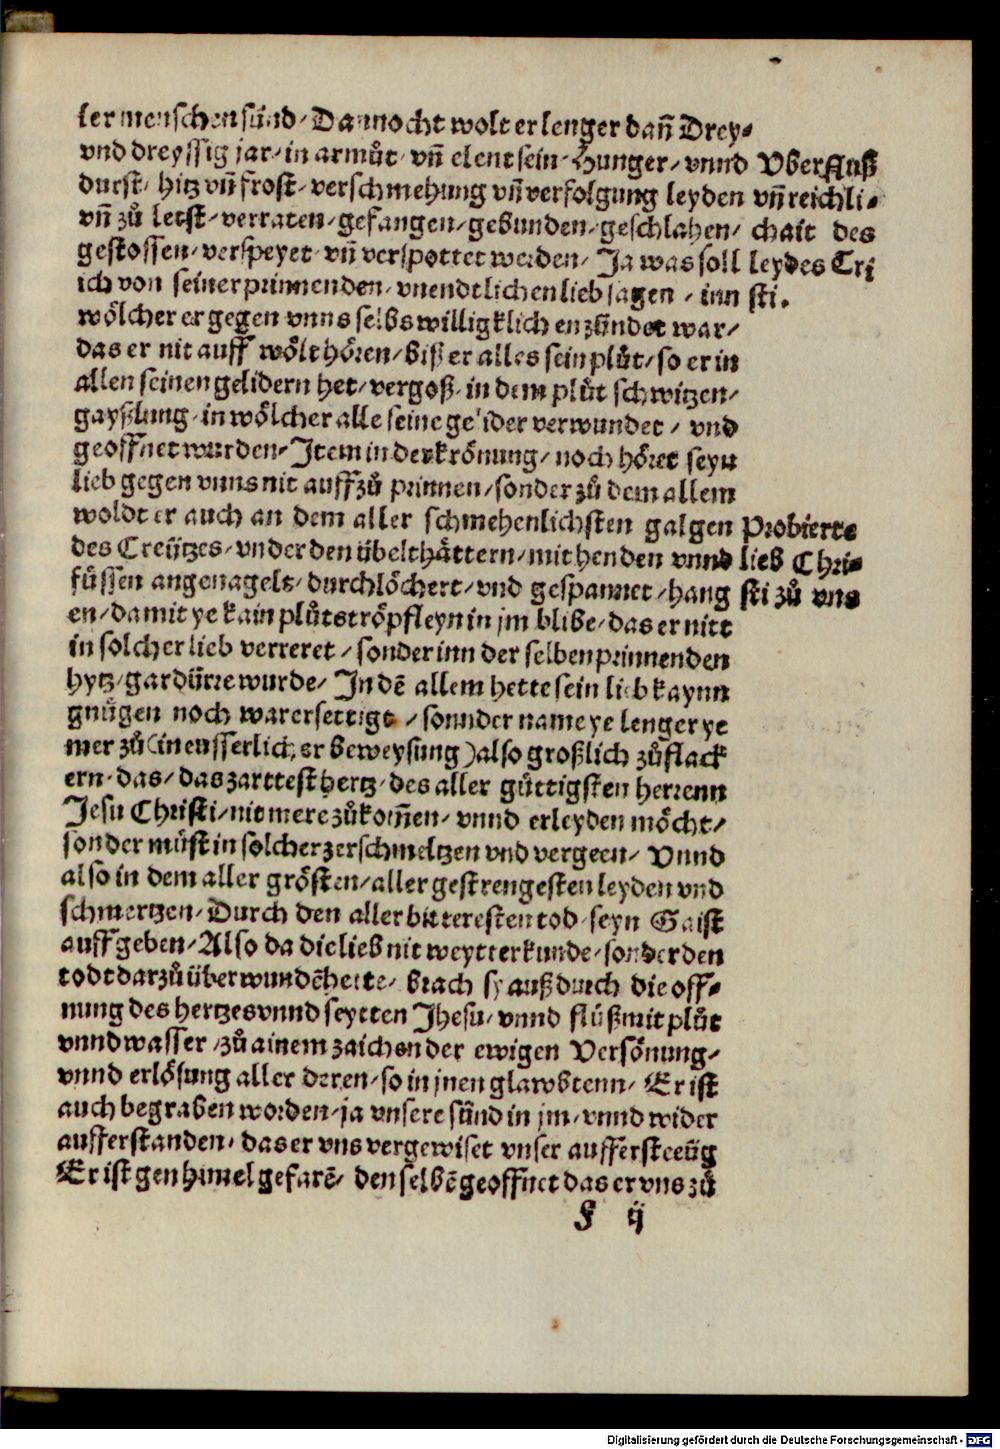 ler menschen sünd / Dannocht wolt er lenger dan̄ Drey⸗
vnd dreyssig jar / in armůt / vn̄ elent sein / Hunger / vnnd
durst / hitz vn̄ frost / verschmehung vn̄ verfolgung leyden
vn̄ zů letst / verraten / gefangen / gebunden / geschlahen /
gestossen / verspeyet / vn̄ verspottet werden / Ja was soll
ich von seiner prinnenden / vnendtlichen lieb sagen / inn
wölcher er gegen vnns selbs willigklich enzündet war /
das er nit auff wölt hören / biß er alles sein plůt / so er in
allen seinen gelidern het / vergoß / in dem plůt schwitzen /
gayßlung / in wölcher alle seine gelider verwundet / vnd
geoffnet wurden / Item in der krönung / noch höret seyn
lieb gegen vnns nit auff zů prinnen / sonder zů dem allem
woldt er auch an dem aller schmehenlichsten galgen
des Creützes / vnder den übelthättern / mit henden vnnd
füssen angenagelt / durchlöchert / vnd gespannet / hang
en / damit ye kain plůtströpfleyn in jm blibe / das er nitt
in solcher lieb verreret / sonder inn der selben prinnenden
hytz / gar dürre wurde / In dē allem hette sein lieb kaynn
gnügen noch war ersettigt / sonnder name ye lenger ye
mer zů (in eusserlicher beweysung) also großlich zůflack
ern / das / das zarttest hertz / des aller güttigsten herrenn
Jesu Christi / nit mere zůkom̄en / vnnd erleyden möcht /
sonder můst in solcher zerschmeltzen vnd vergeen / Vnnd
also in dem aller grösten / aller gestrengesten leyden vnd
schmertzen / Durch den aller bitteresten tod / seyn Gaist
auff geben / Also da die lieb nit weytter kunde / sonder den
todt darzů überwundē hette / brach sy auß durch die off⸗
nung des hertzes vnnd seytten Jhesu / vnnd flüß mit plůt
vnnd wasser / zů ainem zaichen der ewigen Versönung /
vnnd erlösung aller deren / so in jnen glawbtenn / Er ist
auch begraben worden / ja vnsere sünd in jm / vnnd wider
aufferstanden / das er vns vergewiset vnser auffersteeūg
Er ist gen himel gefarē / den selbē geoffnet das er vns zů
F ij
Vberfluß
vn̄ reichli⸗
chait des
leydes Cri
sti.
Probierte
lieb Chri⸗
sti zů vns
Digitalisierung gefördert durch die Deutsche Forschungsgemeinschaft - DFG